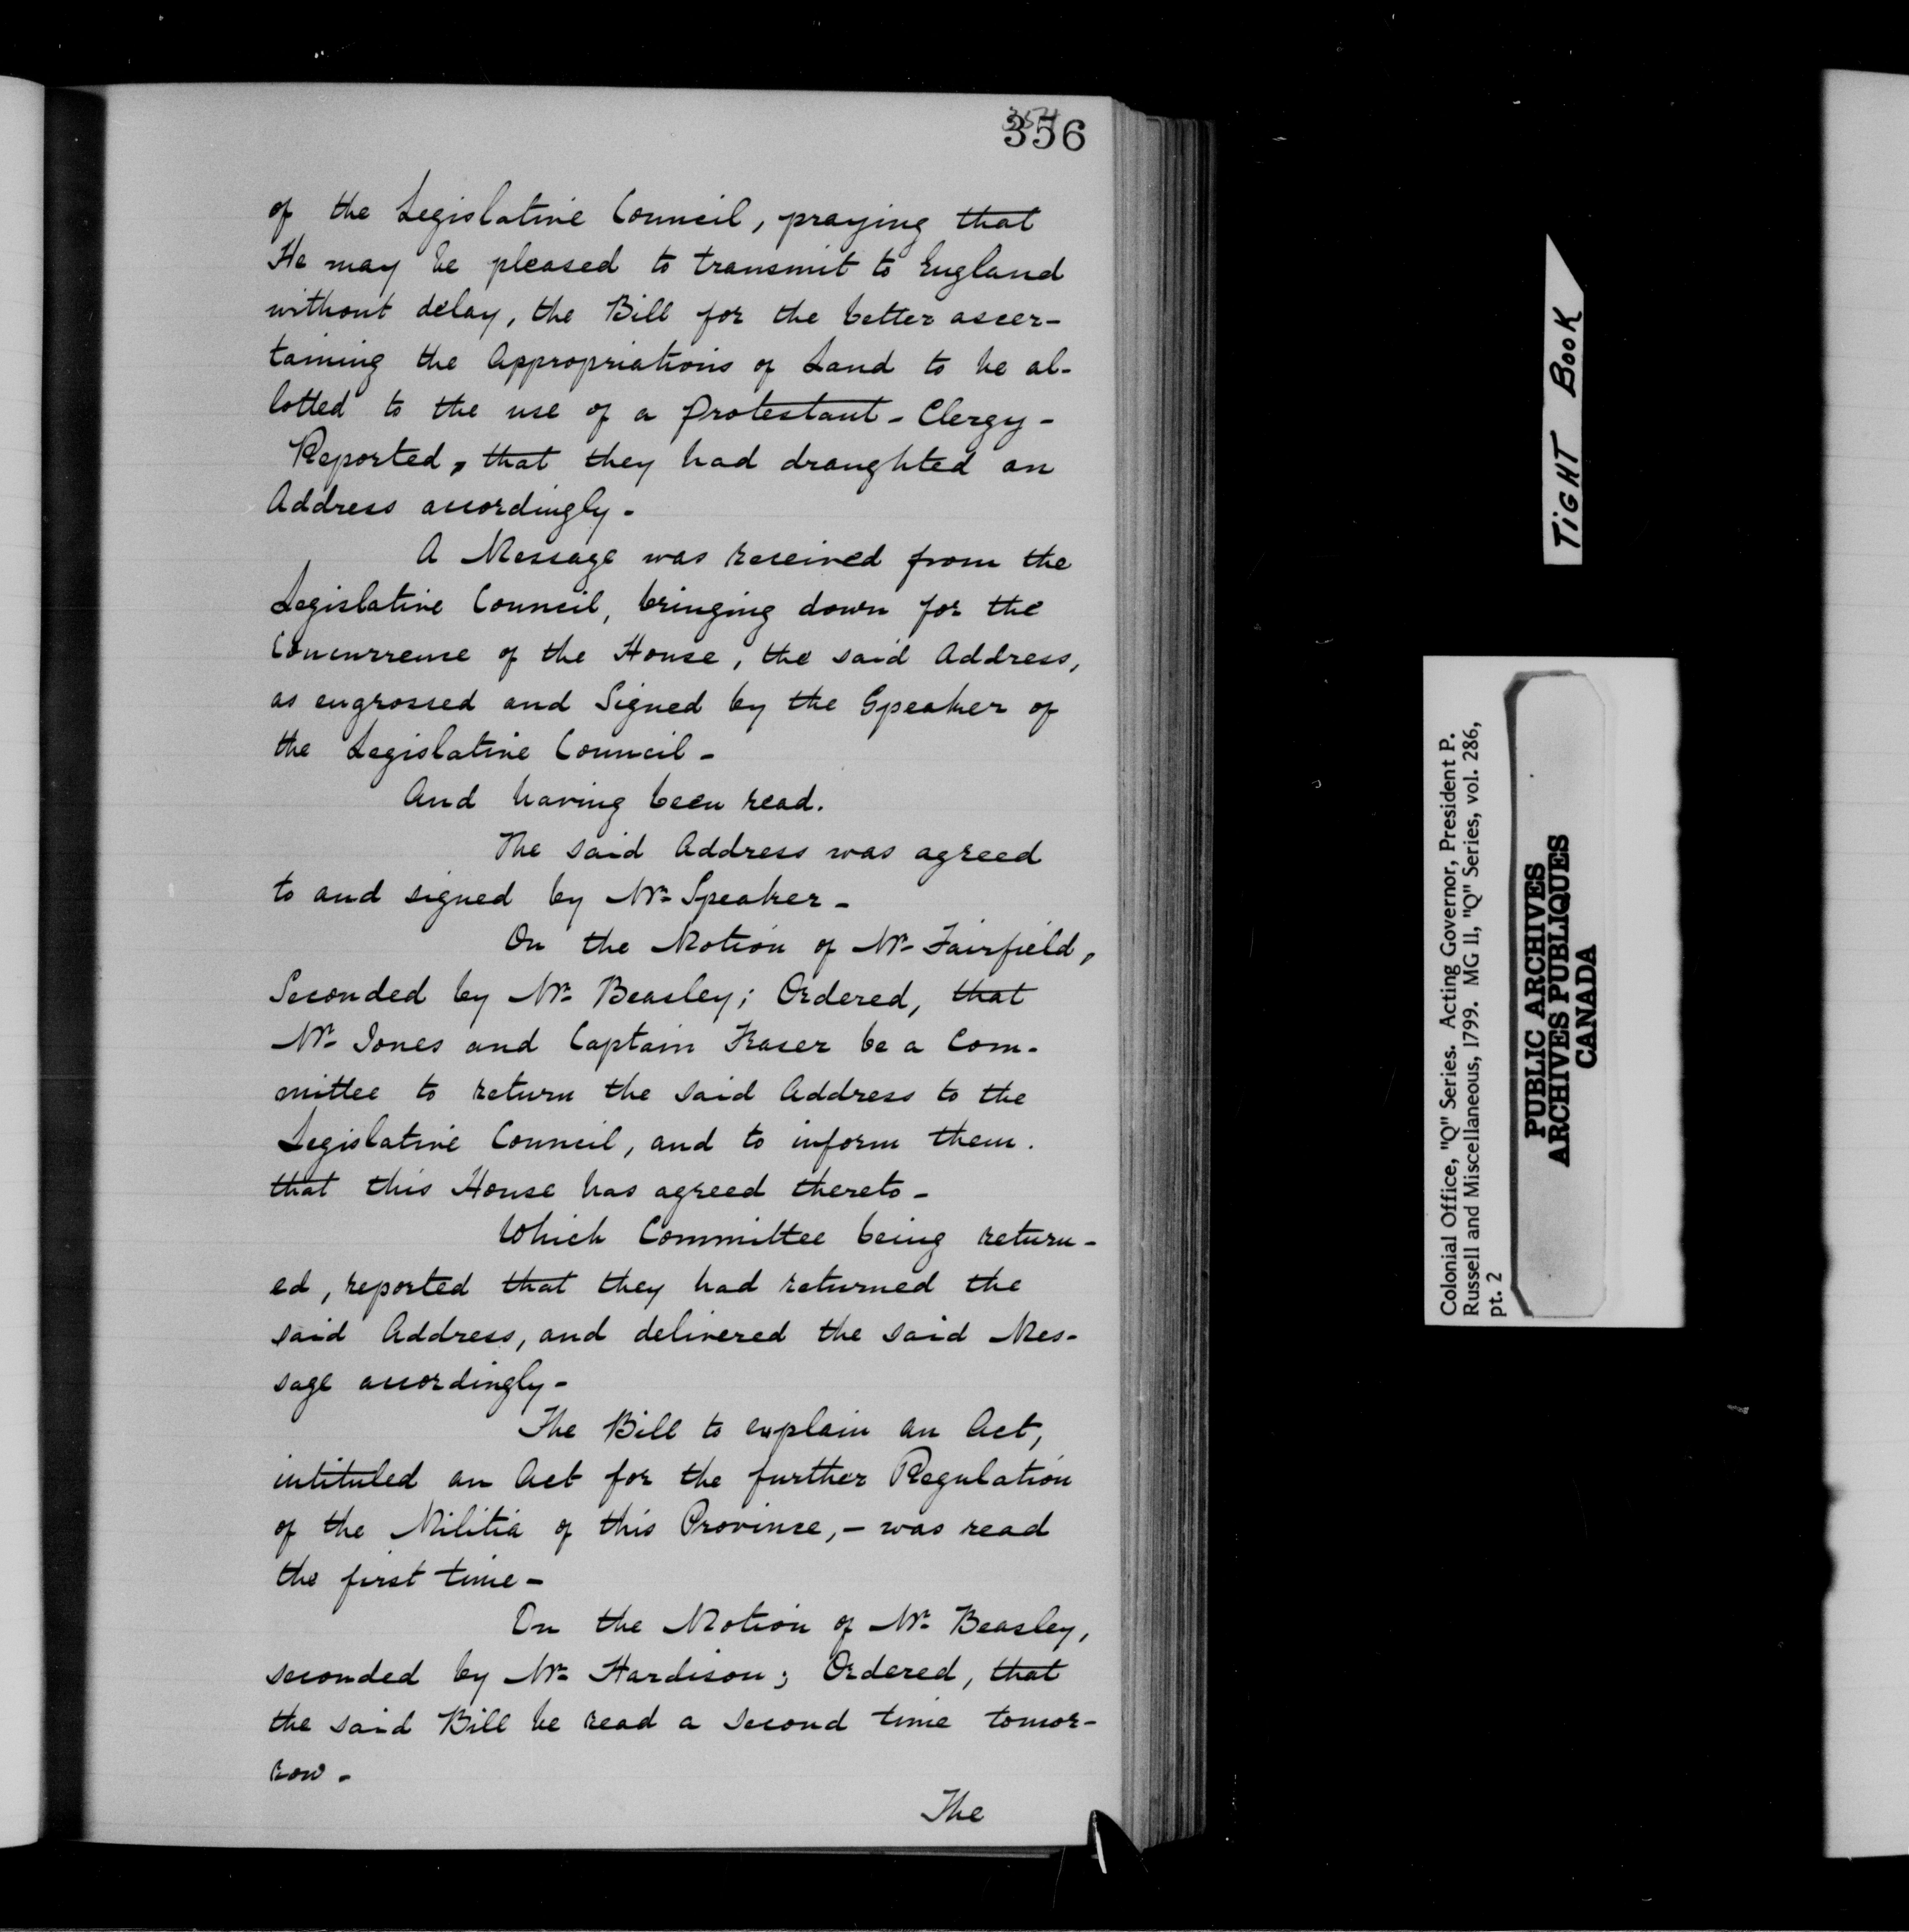 356
of the Legislative Council, praying that
He may be pleased to transmit to England
without delay, the Bill for the better ascer-
taining the Appropriations of Land to be al-
lotted to the use of a Protestant - Clergy -
Reported, that they had draughted an
Address accordingly -
A Message was received from the
Legislative Council, bringing down for the
Concurrence of the House, the said Address,
as engrossed and Signed by the Speaker of
the Legislative Council -
And having been read.
The said Address was agreed
to and signed by Mr. Speaker -
On the Motion of Mr. Fairfield,
Seconded by Mr. Beasley; Ordered, that
Mr. Jones and Captain Fraser be a Com-
mittee to return the said Address to the
Legislative Council, and to inform them.
that this House has agreed thereto -
Which Committee being return-
ed, reported that they had returned the
said Address, and delivered the said Mes-
sage accordingly -
The Bill to explain an Act,
intituled an Act for the further Regulation
of the Militia of this Province, - was read
the first time -
On the Motion of Mr. Beasley,
seconded by Mr. Hardison; Ordered, that
the said Bill be read a second time tomor-
row -
The
TIGHT BOOK
Colonial Office, "Q" Series. Acting Governor, President P.
Russell and Miscellaneous, 1799. MG 11, "Q" Series, vol. 286,
pt. 2
PUBLIC ARCHIVES
ARCHIVES PUBLIQUES
CANADA